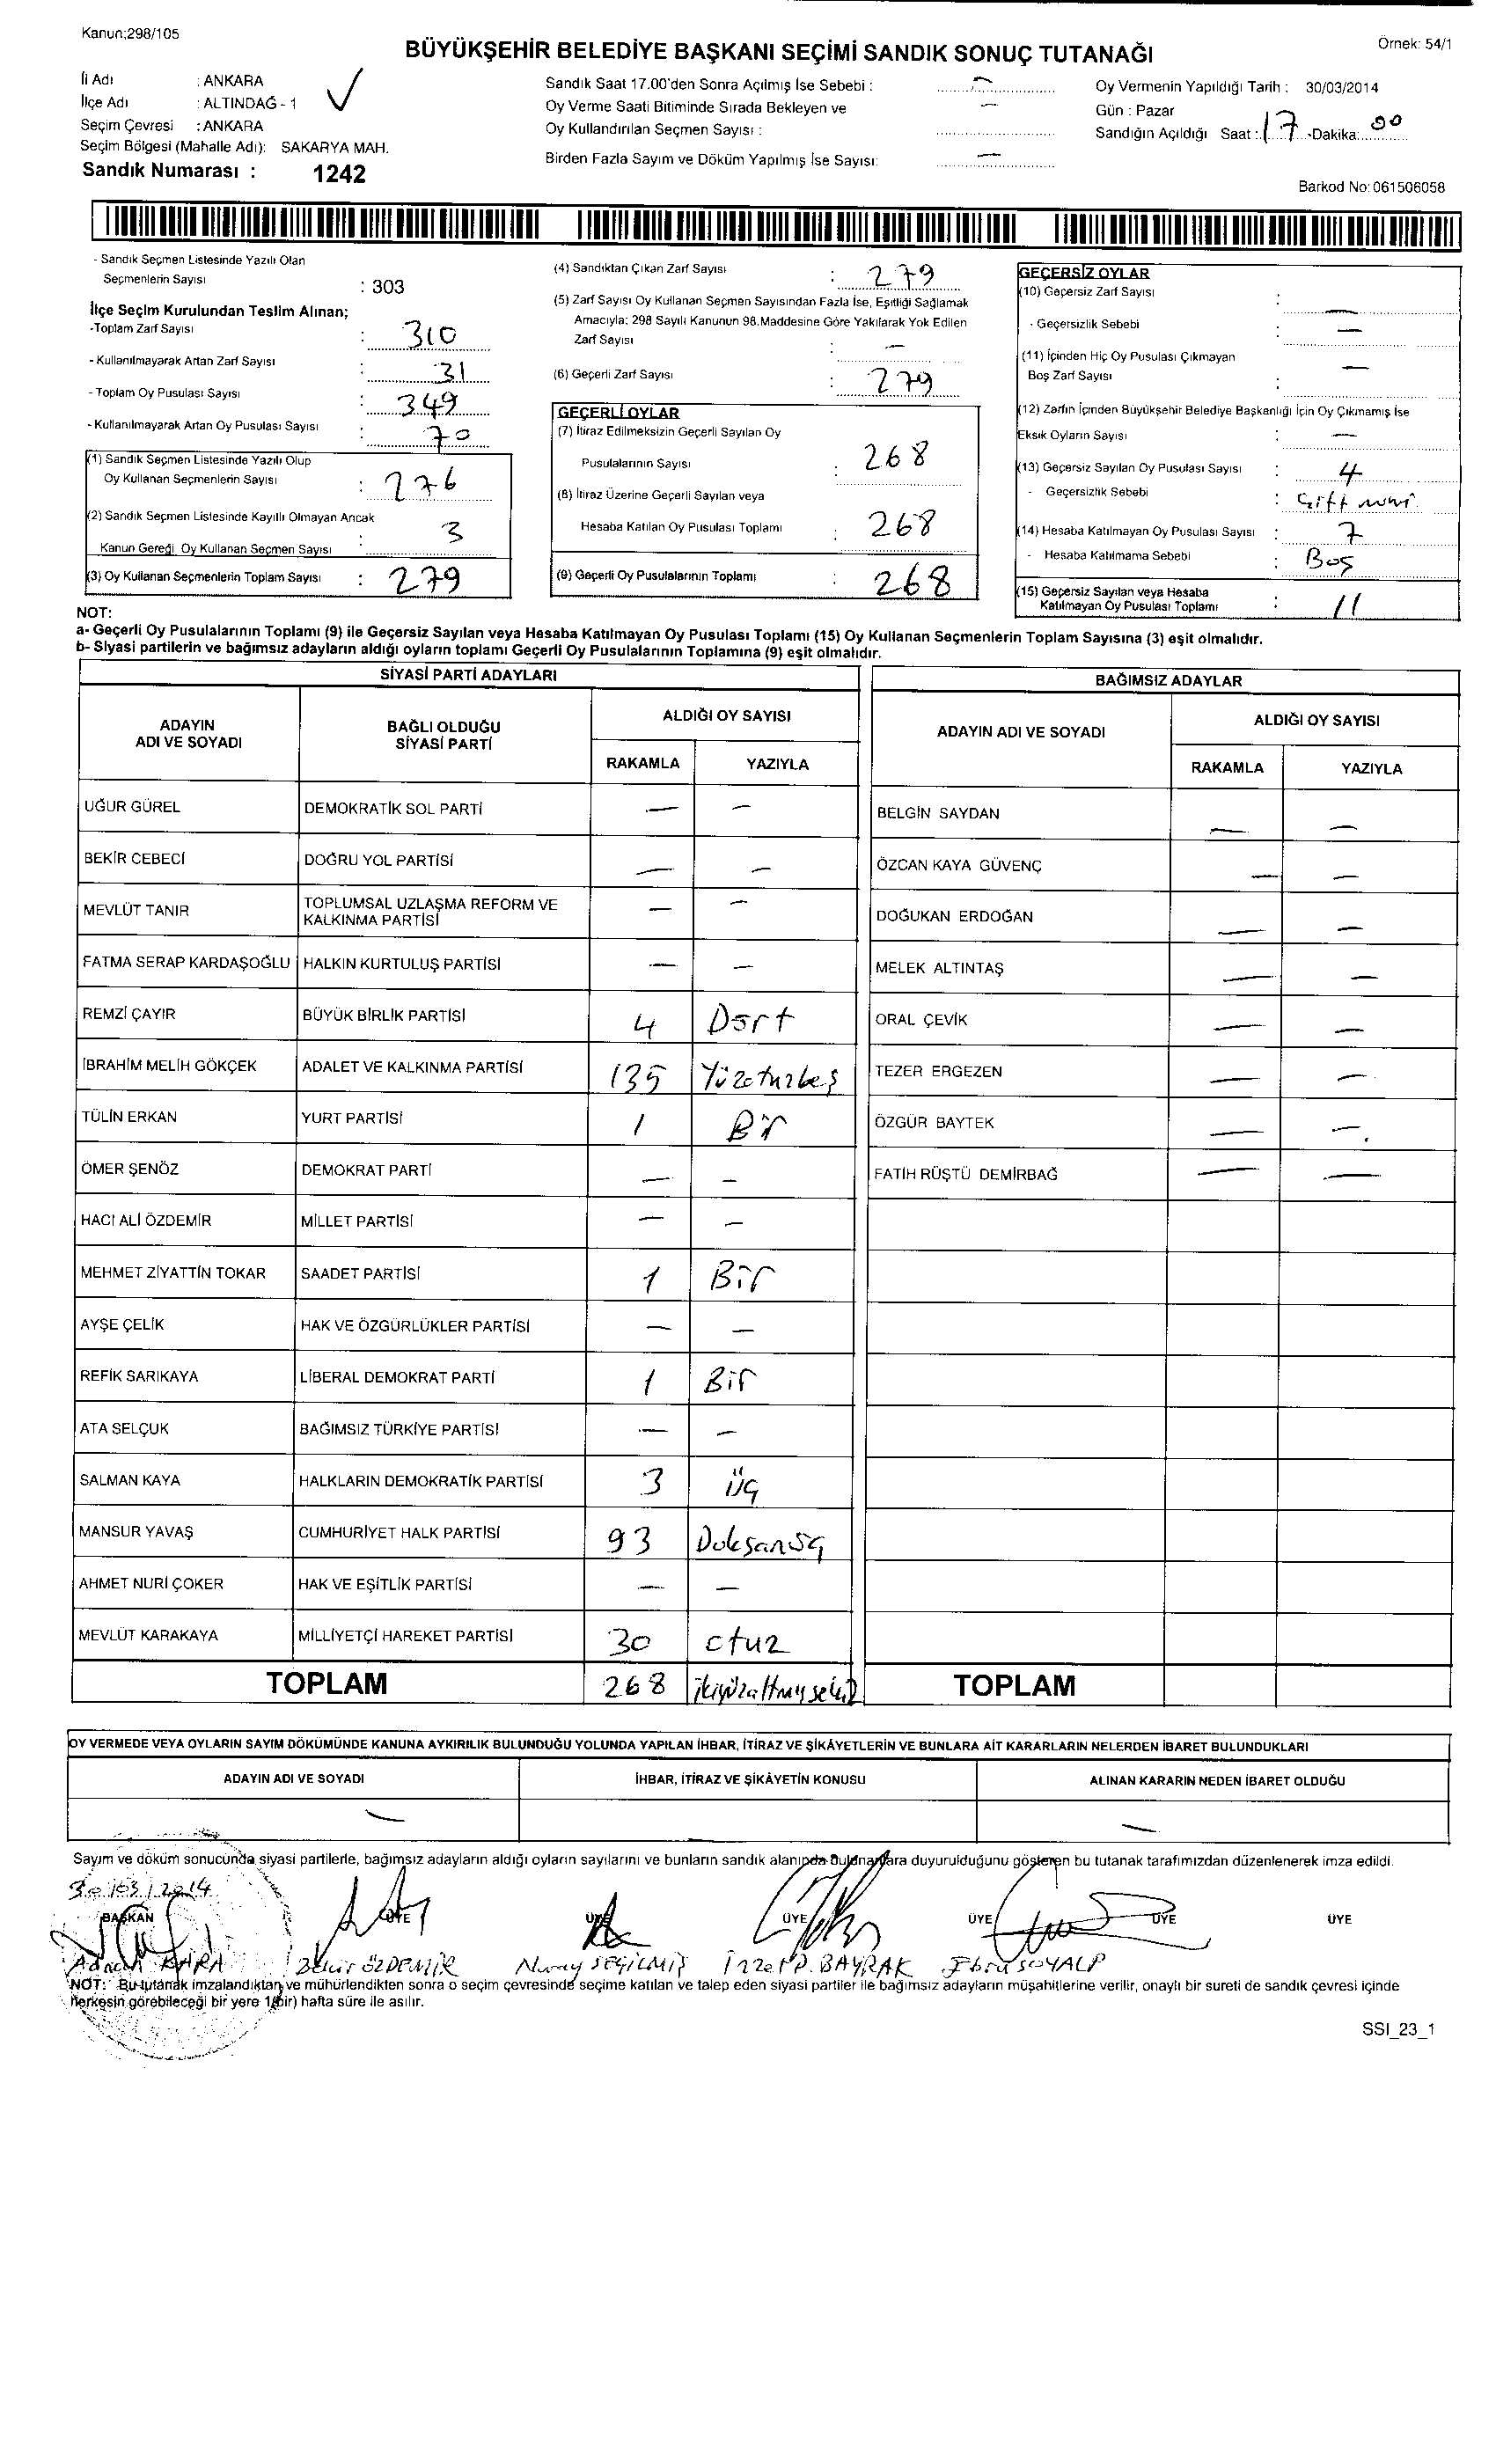 Kanun:298/105
Örnek: 54/1
BÜYÜKŞEHİR BELEDİYE BAŞKANI SEÇİMİ SANDIK SONUÇ TUTANAĞI
İl Adı : ANKARA
İlçe Adı : ALTINDAĞ - 1
Seçim Çevresi : ANKARA
Seçim Bölgesi (Mahalle Adı): SAKARYA MAH.
Sandık Numarası : 1242
Sandık Saat 17.00'den Sonra Açılmış İse Sebebi : —
Oy Verme Saati Bitiminde Sırada Bekleyen ve —
Oy Kullandırılan Seçmen Sayısı :
Birden Fazla Sayım ve Döküm Yapılmış İse Sayısı: —
Oy Vermenin Yapıldığı Tarih : 30/03/2014
Gün : Pazar
Sandığın Açıldığı Saat : 17 -Dakika: 00
Barkod No: 061506058
- Sandık Seçmen Listesinde Yazılı Olan
Seçmenlerin Sayısı : 303
İlçe Seçim Kurulundan Teslim Alınan;
-Toplam Zarf Sayısı : 310
- Kullanılmayarak Artan Zarf Sayısı : 31
- Toplam Oy Pusulası Sayısı : 349
- Kullanılmayarak Artan Oy Pusulası Sayısı : 70
(1) Sandık Seçmen Listesinde Yazılı Olup
Oy Kullanan Seçmenlerin Sayısı : 276
(2) Sandık Seçmen Listesinde Kayıllı Olmayan Ancak
Kanun Gereği Oy Kullanan Seçmen Sayısı : 3
(3) Oy Kullanan Seçmenlerin Toplam Sayısı : 279
(4) Sandıktan Çıkan Zarf Sayısı : 279
(5) Zarf Sayısı Oy Kullanan Seçmen Sayısından Fazla İse, Eşitliği Sağlamak
Amacıyla: 298 Sayılı Kanunun 98.Maddesine Göre Yakılarak Yok Edilen
Zarf Sayısı : —
(6) Geçerli Zarf Sayısı : 279
GEÇERLİ OYLAR
(7) İtiraz Edilmeksizin Geçerli Sayılan Oy
Pusulalarının Sayısı : 268
(8) İtiraz Üzerine Geçerli Sayılan veya
Hesaba Katılan Oy Pusulası Toplamı : 268
(9) Geçerli Oy Pusulalarının Toplamı : 268
GEÇERSİZ OYLAR
(10) Geçersiz Zarf Sayısı : —
- Geçersizlik Sebebi : —
(11) İçinden Hiç Oy Pusulası Çıkmayan
Boş Zarf Sayısı : —
(12) Zarfın İçinden Büyükşehir Belediye Başkanlığı İçin Oy Çıkmamış İse
Eksik Oyların Sayısı : —
(13) Geçersiz Sayılan Oy Pusulası Sayısı : 4
- Geçersizlik Sebebi :
(14) Hesaba Katılmayan Oy Pusulası Sayısı : 7
- Hesaba Katılmama Sebebi : Boş
(15) Geçersiz Sayılan veya Hesaba
Katılmayan Oy Pusulası Toplamı : 11
NOT:
a- Geçerli Oy Pusulalarının Toplamı (9) ile Geçersiz Sayılan veya Hesaba Katılmayan Oy Pusulası Toplamı (15) Oy Kullanan Seçmenlerin Toplam Sayısına (3) eşit olmalıdır.
b- Siyasi partilerin ve bağımsız adayların aldığı oyların toplamı Geçerli Oy Pusulalarının Toplamına (9) eşit olmalıdır.
SİYASİ PARTİ ADAYLARI
ADAYIN ADI VE SOYADI BAĞLI OLDUĞU SİYASİ PARTİ ALDIĞI OY SAYISI
RAKAMLA YAZIYLA
UĞUR GÜREL DEMOKRATİK SOL PARTİ — —
BEKİR CEBECİ DOĞRU YOL PARTİSİ — —
MEVLÜT TANIR TOPLUMSAL UZLAŞMA REFORM VE KALKINMA PARTİSİ — —
FATMA SERAP KARDAŞOĞLU HALKIN KURTULUŞ PARTİSİ — —
REMZİ ÇAYIR BÜYÜK BİRLİK PARTİSİ 4 Dört
İBRAHİM MELİH GÖKÇEK ADALET VE KALKINMA PARTİSİ 135 Yüzotuzbeş
TÜLİN ERKAN YURT PARTİSİ 1 Bir
ÖMER ŞENÖZ DEMOKRAT PARTİ — —
HACI ALİ ÖZDEMİR MİLLET PARTİSİ — —
MEHMET ZİYATTİN TOKAR SAADET PARTİSİ 1 Bir
AYŞE ÇELİK HAK VE ÖZGÜRLÜKLER PARTİSİ — —
REFİK SARIKAYA LİBERAL DEMOKRAT PARTİ 1 Bir
ATA SELÇUK BAĞIMSIZ TÜRKİYE PARTİSİ — —
SALMAN KAYA HALKLARIN DEMOKRATİK PARTİSİ 3 Üç
MANSUR YAVAŞ CUMHURİYET HALK PARTİSİ 93 Doksanüç
AHMET NURİ ÇOKER HAK VE EŞİTLİK PARTİSİ — —
MEVLÜT KARAKAYA MİLLİYETÇİ HAREKET PARTİSİ 30 otuz
TOPLAM 268 ikiyüzaltmışsekiz
BAĞIMSIZ ADAYLAR
ADAYIN ADI VE SOYADI ALDIĞI OY SAYISI
RAKAMLA YAZIYLA
BELGİN SAYDAN — —
ÖZCAN KAYA GÜVENÇ — —
DOĞUKAN ERDOĞAN — —
MELEK ALTINTAŞ — —
ORAL ÇEVİK — —
TEZER ERGEZEN — —
ÖZGÜR BAYTEK — —
FATİH RÜŞTÜ DEMİRBAĞ — —
TOPLAM
OY VERMEDE VEYA OYLARIN SAYIM DÖKÜMÜNDE KANUNA AYKIRILIK BULUNDUĞU YOLUNDA YAPILAN İHBAR, İTİRAZ VE ŞİKÂYETLERİN VE BUNLARA AİT KARARLARIN NELERDEN İBARET BULUNDUKLARI
ADAYIN ADI VE SOYADI İHBAR, İTİRAZ VE ŞİKÂYETİN KONUSU ALINAN KARARIN NEDEN İBARET OLDUĞU
— —
Sayım ve döküm sonucunda siyasi partilerle, bağımsız adayların aldığı oyların sayılarını ve bunların sandık alanında bulunanlara duyurulduğunu gösteren bu tutanak tarafımızdan düzenlenerek imza edildi.
30/03/2014
BAŞKAN ÜYE ÜYE ÜYE ÜYE ÜYE ÜYE
KARA ÖZDEMİR Nuray SEÇİLMİŞ İzzet P. BAYRAK Ebru SOYALP
NOT: Bu tutanak imzalandıktan ve mühürlendikten sonra o seçim çevresinde seçime katılan ve talep eden siyasi partiler ile bağımsız adayların müşahitlerine verilir, onaylı bir sureti de sandık çevresi içinde
herkesin görebileceği bir yere 1(bir) hafta süre ile asılır.
SSI_23_1